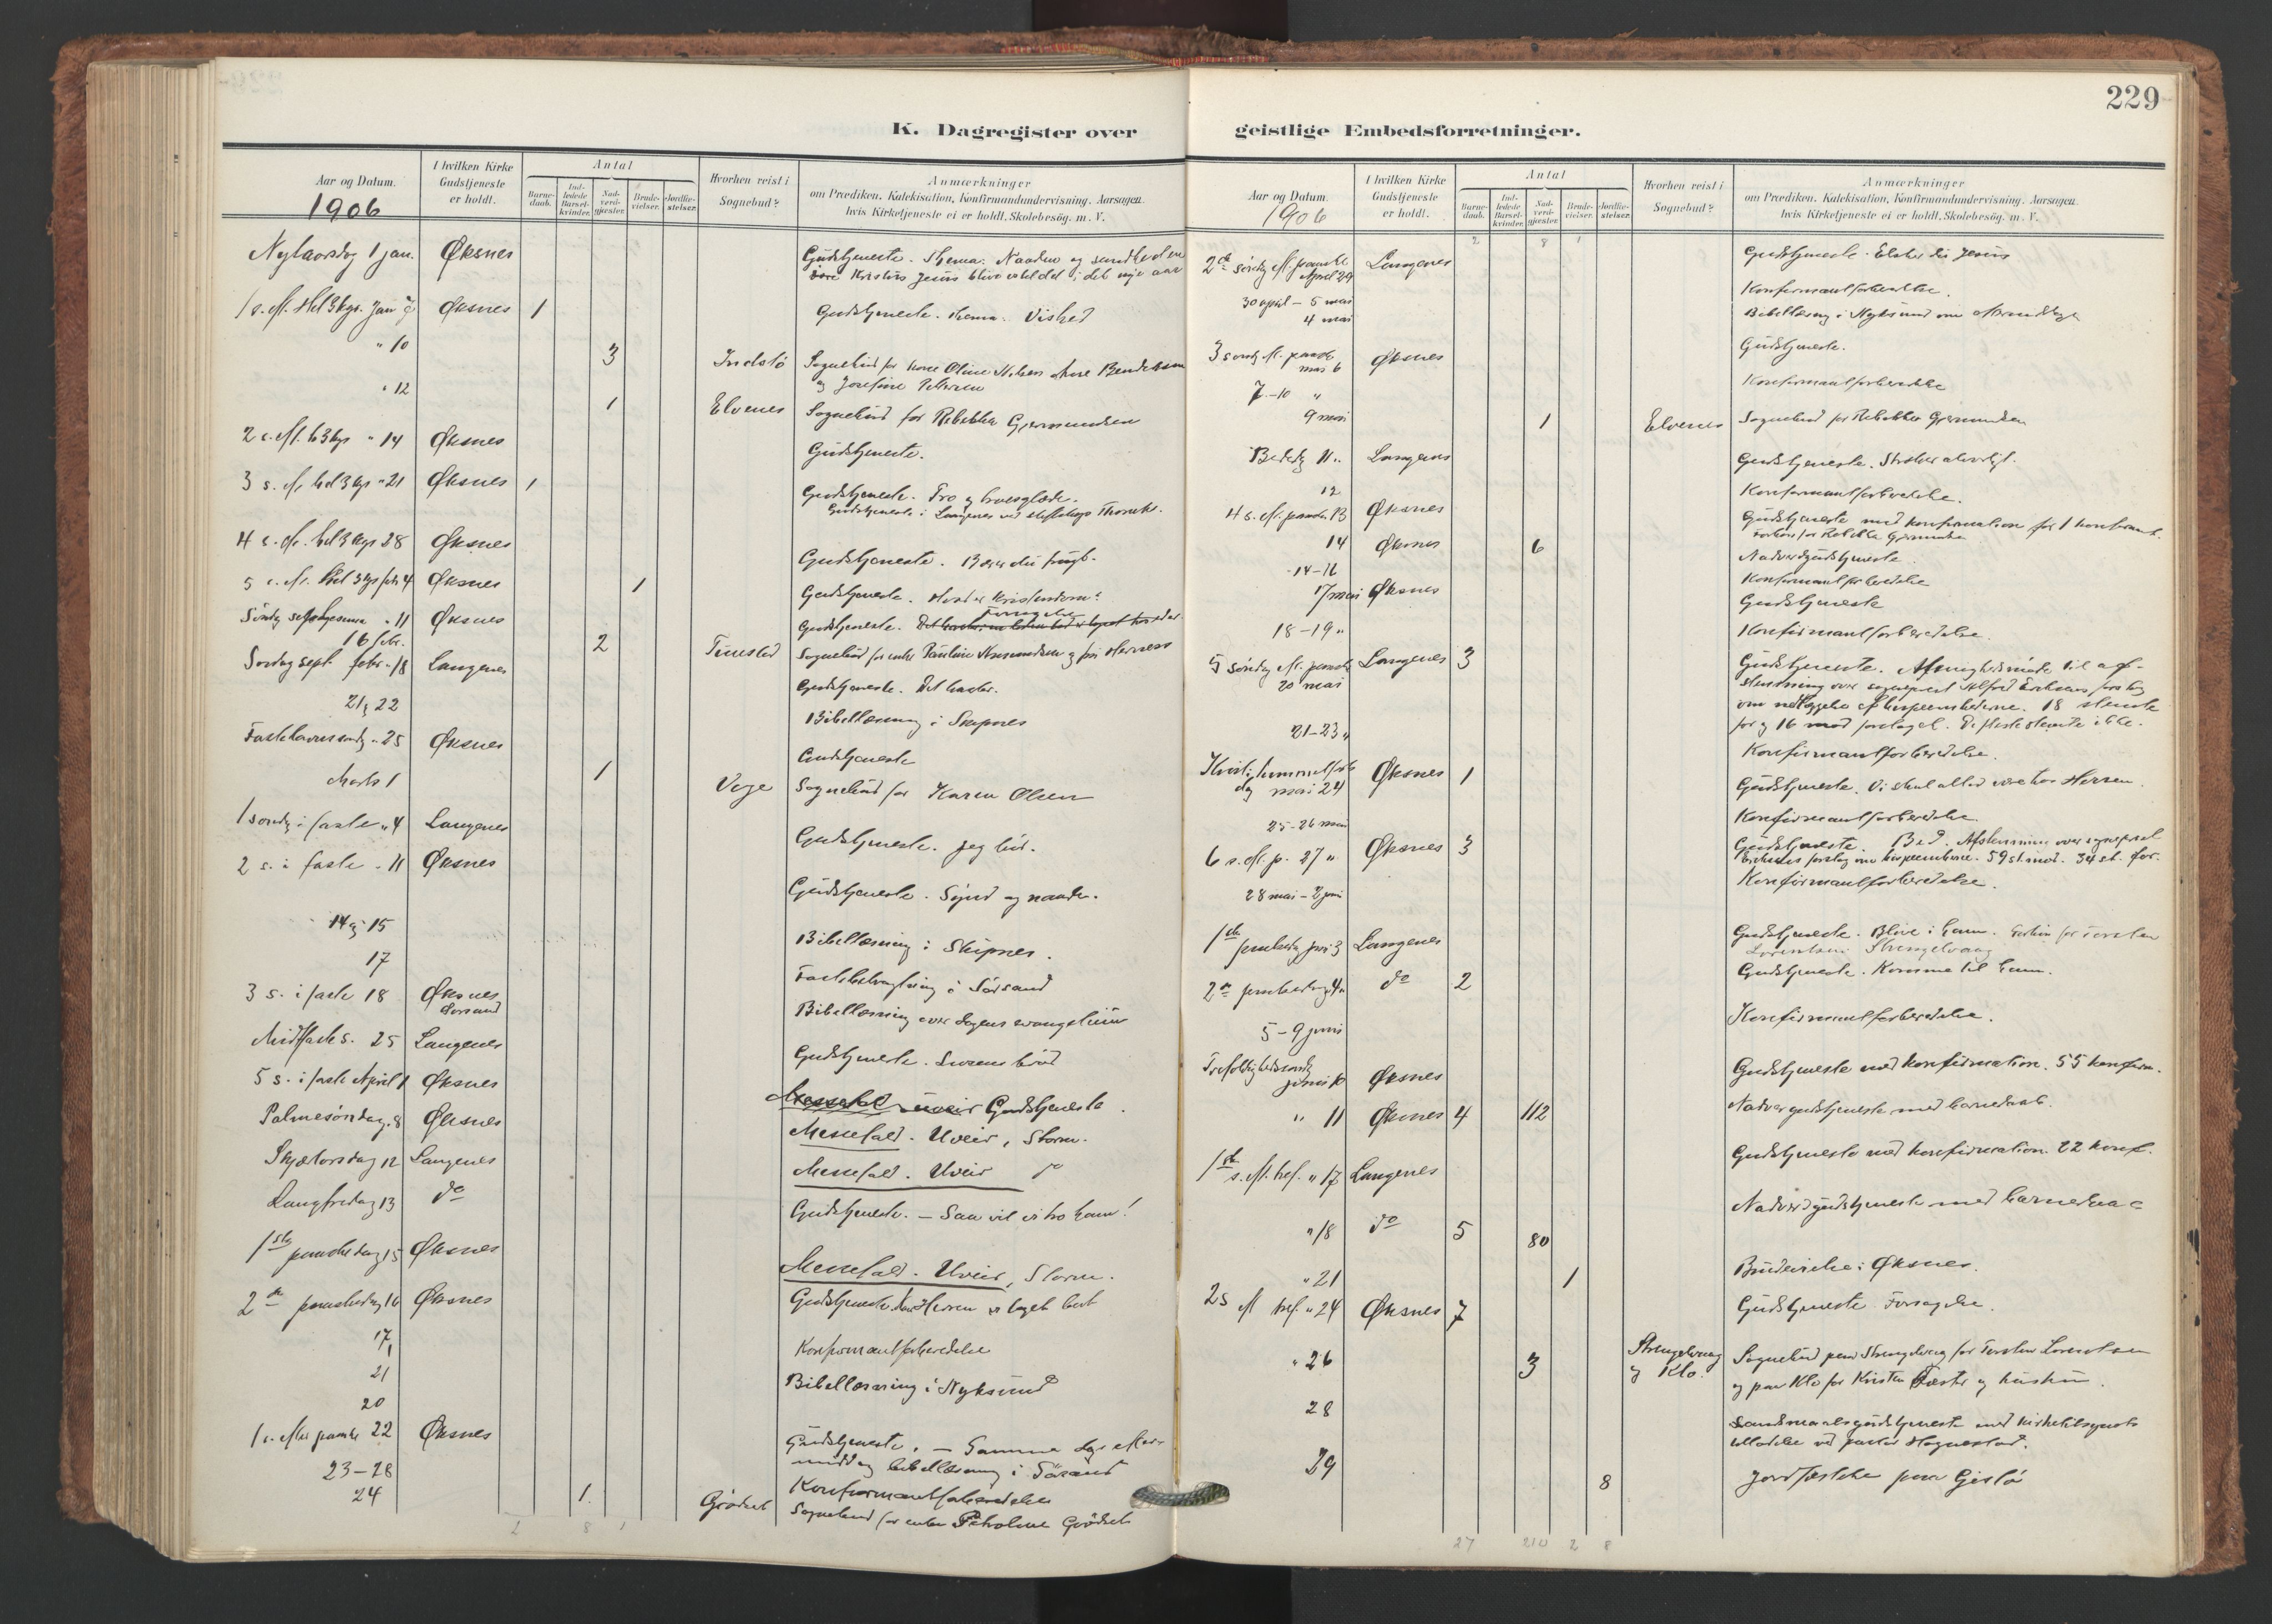 K. Dagregister over
Aar og Datum.
1906
I hvilken Kirke Gudstjeneste er holdt.
Antal
Barnedaab.
Indledede Barselkvinder.
Nadverdgjester.
Brudevielser.
Jordfæstelser.
Hvorhen reist i Sognebud?
Anmærkninger
om Prædiken, Katekisation, Konfirmandundervisning. Aarsagen,
hvis Kirketjeneste ei er holdt, Skolebesøg. m. V.
Nytaarsdag 1 jan. Øksnes Gudstjeneste. Thema: Naaden og sandheden
Kristus Jesus blive ved det i det nye aar
1 s. eft. Hel 3 kgr. Jan 7 Øksnes 1 Gudstjeneste. Thema. Vished
" 10 3 Sognebud for kone Oline Nilsen
og Josefine Pettersen
" 12 1 Elvenes Sognebud for Rebekka Gjermundsen
2 s. eft. h 3 kgs " 14 Øksnes Gudstjeneste.
3 s. eft. hel 3 kgs " 21 Øksnes 1 Gudstjeneste. Tro og troesglæde.
Gudstjeneste i Langenes ved
4 s. eft. hel 3 kgs 28 Øksnes Gudstjeneste. Bærer du frugt.
5 s. eft. Hel 3 kgs febr 4 Øksnes 1 Gudstjeneste. Hvad er Kristendom?
Søndag septuagesima " 11 Øksnes Gudstjeneste. Fornegtelse
16 febr. 2 Tinestad Sognebud for enke Pauline
Søndag febr. 18 Langenes Gudstjeneste. Det haster.
21 & 22 Bibellæsning i Skipnes
Fastelavnssøndag " 25 Øksnes Gudstjeneste
Marts 1 1 Sognebud for Karen Olsen
1 søndag i faste " 4 Langenes Gudstjeneste.
2 s. i faste " 11 Øksnes Gudstjeneste. Synd og naade.
14 & 15 Bibellæsning i Skipnes.
17 Fastebetragtning i Sørsand
3 s. i faste 18 Øksnes Sørsand Bibellæsning over dagens evangelium
Midfaste s. 25 Langenes Gudstjeneste. Livsens brød
5 s. i faste April 1 Øksnes Gudstjeneste.
Palmesøndag " 8 Øksnes Messefald. Uveir, Storm.
Skjærtorsdag 12 Langenes Messefald. Uveir do
Langfredag 13 do Gudstjeneste. — Saa vil vi tro ham!
1ste paaskedag 15 Øksnes Messefald. Uveir, Storm.
2den paaskedag 16 Øksnes Gudstjeneste. Herren er taget bort
17,
21 Konfirmantforberedelse
20 Bibellæsning i Nyksund
1 s. efter paaske 22 Øksnes Gudstjeneste. — Samme dags efter-
middag bibellæsning i Sørsand
23–28 Konfirmantforberedelse
24 1. Grødset Sognebud for enken Grødset
2 8 1
229
geistlige Embedsforretninger.
Aar og Datum.
1906
I hvilken Kirke Gudstjeneste er holdt.
Antal
Barnedaab.
Indledede Barselkvinder.
Nadverdgjester.
Brudevielser.
Jordfæstelser.
Hvorhen reist i Sognebud?
Anmærkninger
om Prædiken, Katekisation, Konfirmandundervisning. Aarsagen,
hvis Kirketjeneste ei er holdt, Skolebesøg. m. V.
2 8 1
2den søndag eft. paaske April 29 Langenes Gudstjeneste. Elsker du Jesus
30 april – 5 mai Konfirmantforberedelse.
4 mai Bibellæsning i Nyksund om
3 søndag eft. paaske mai 6 Øksnes Gudstjeneste.
7–10 " Konfirmantforberedelse
9 mai 1 Elvenes Sognebud for Rebekka Gjermundsen
Bededag 11 " Langenes Gudstjeneste.
12 Konfirmantforberedelse.
4 s. eft. paaske 13 Øksnes Gudstjeneste med konfirmation for 1 konfirmant.
14 Øksnes 6 Nadverdgudstjeneste.
14–16 Konfirmantforberedelse
17 mai Øksnes Gudstjeneste
18–19 " Konfirmantforberedelse.
5 søndag eft. paaske 20 mai Langenes 3 Gudstjeneste. Menighedsmøde til af-
stemning over sogneprest Alfred Eriksens forslag
om nedlæggelse af bispeembederne. 18 stemte
for og 16 mod forslaget. De fleste stemte ikke.
21–23 " Konfirmantforberedelse.
Kristi himmelfartsdag mai 24 Øksnes 1 Gudstjeneste. Vi skal altid være hos Herren.
25–26 mai Konfirmantforberedelse.
6 s. eft. p. 27 " Øksnes 3 Gudstjeneste. Bed. Afstemning over sogneprest
Eriksens forslag om bispeembederne. 59 st. mod. 34 st. for.
28 mai – 2 juni Konfirmantforberedelse.
1ste pinsedag juni 3 Langenes Gudstjeneste. Blive i ham. for Torsten
Lorentsen Strengelvaag
2den pinsedag " 4 " do 2 Gudstjeneste. Komme til ham.
5–9 juni Konfirmantforberedelse.
Trefoldighedssøndag juni 10 Øksnes Gudstjeneste med konfirmation. 55 konfirm.
" 11 Øksnes 4 112 Nadverdgudstjeneste med barnedaab.
1ste s. eft. tref. " 17 Langenes Gudstjeneste med konfirmation. 22 konf.
" 18 do 5 80 Nadverdgudstjeneste med barnedaab
" 21 1 Brudevielse i Øksnes.
2 s eft tref. " 24 Øksnes 7 Gudstjeneste. Forsagelse.
" 26 3 Strengelvaag og Klo. Sognebud paa Strengelvaag for Torsten Lorentsen
og paa Klo for Kristen og hustru.
28 Landsmaalsgudstjeneste med
ved pastor Hognestad.
29 8 Jordfæstelse paa Gislø
27 210 2 8